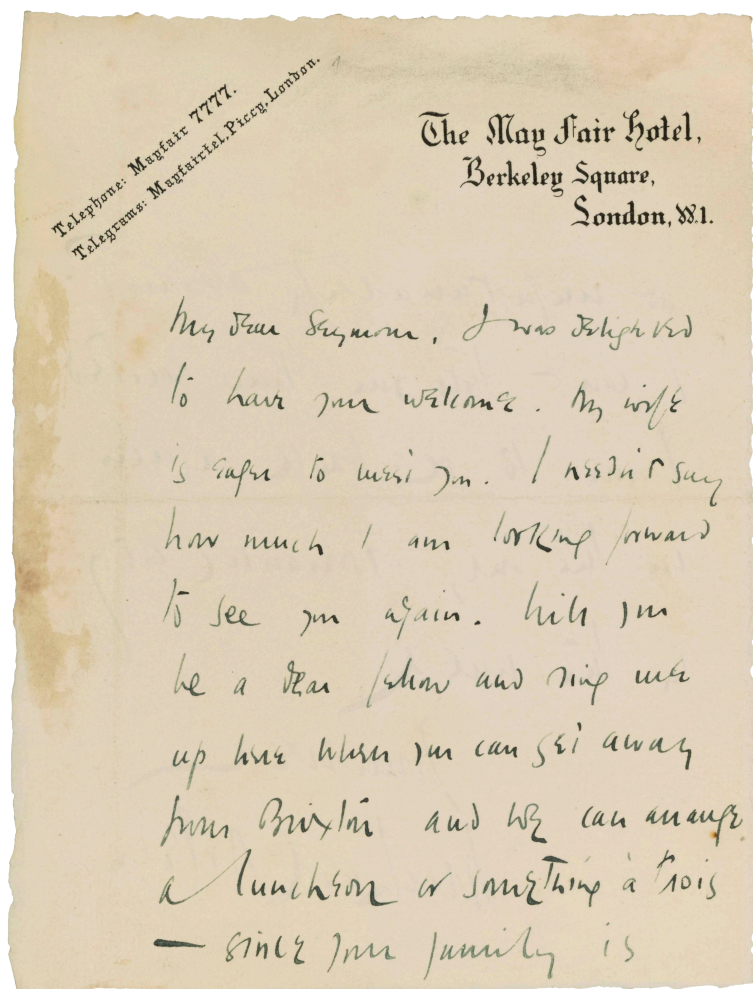 Telephone: Mayfair 7777.
Telegrams: Mayfairtel, Piccy, London.
The May Fair Hotel,
Berkeley Square,
London, W.1.
My dear Seymour, I was delighted
to have your welcome. My wife
is eager to meet you. I needn't say
how much I am looking forward
to see you again. Will you
be a dear fellow and ring me
up here when you can get away
from Brixton and we can arrange
a luncheon or something à trois
— since your family is